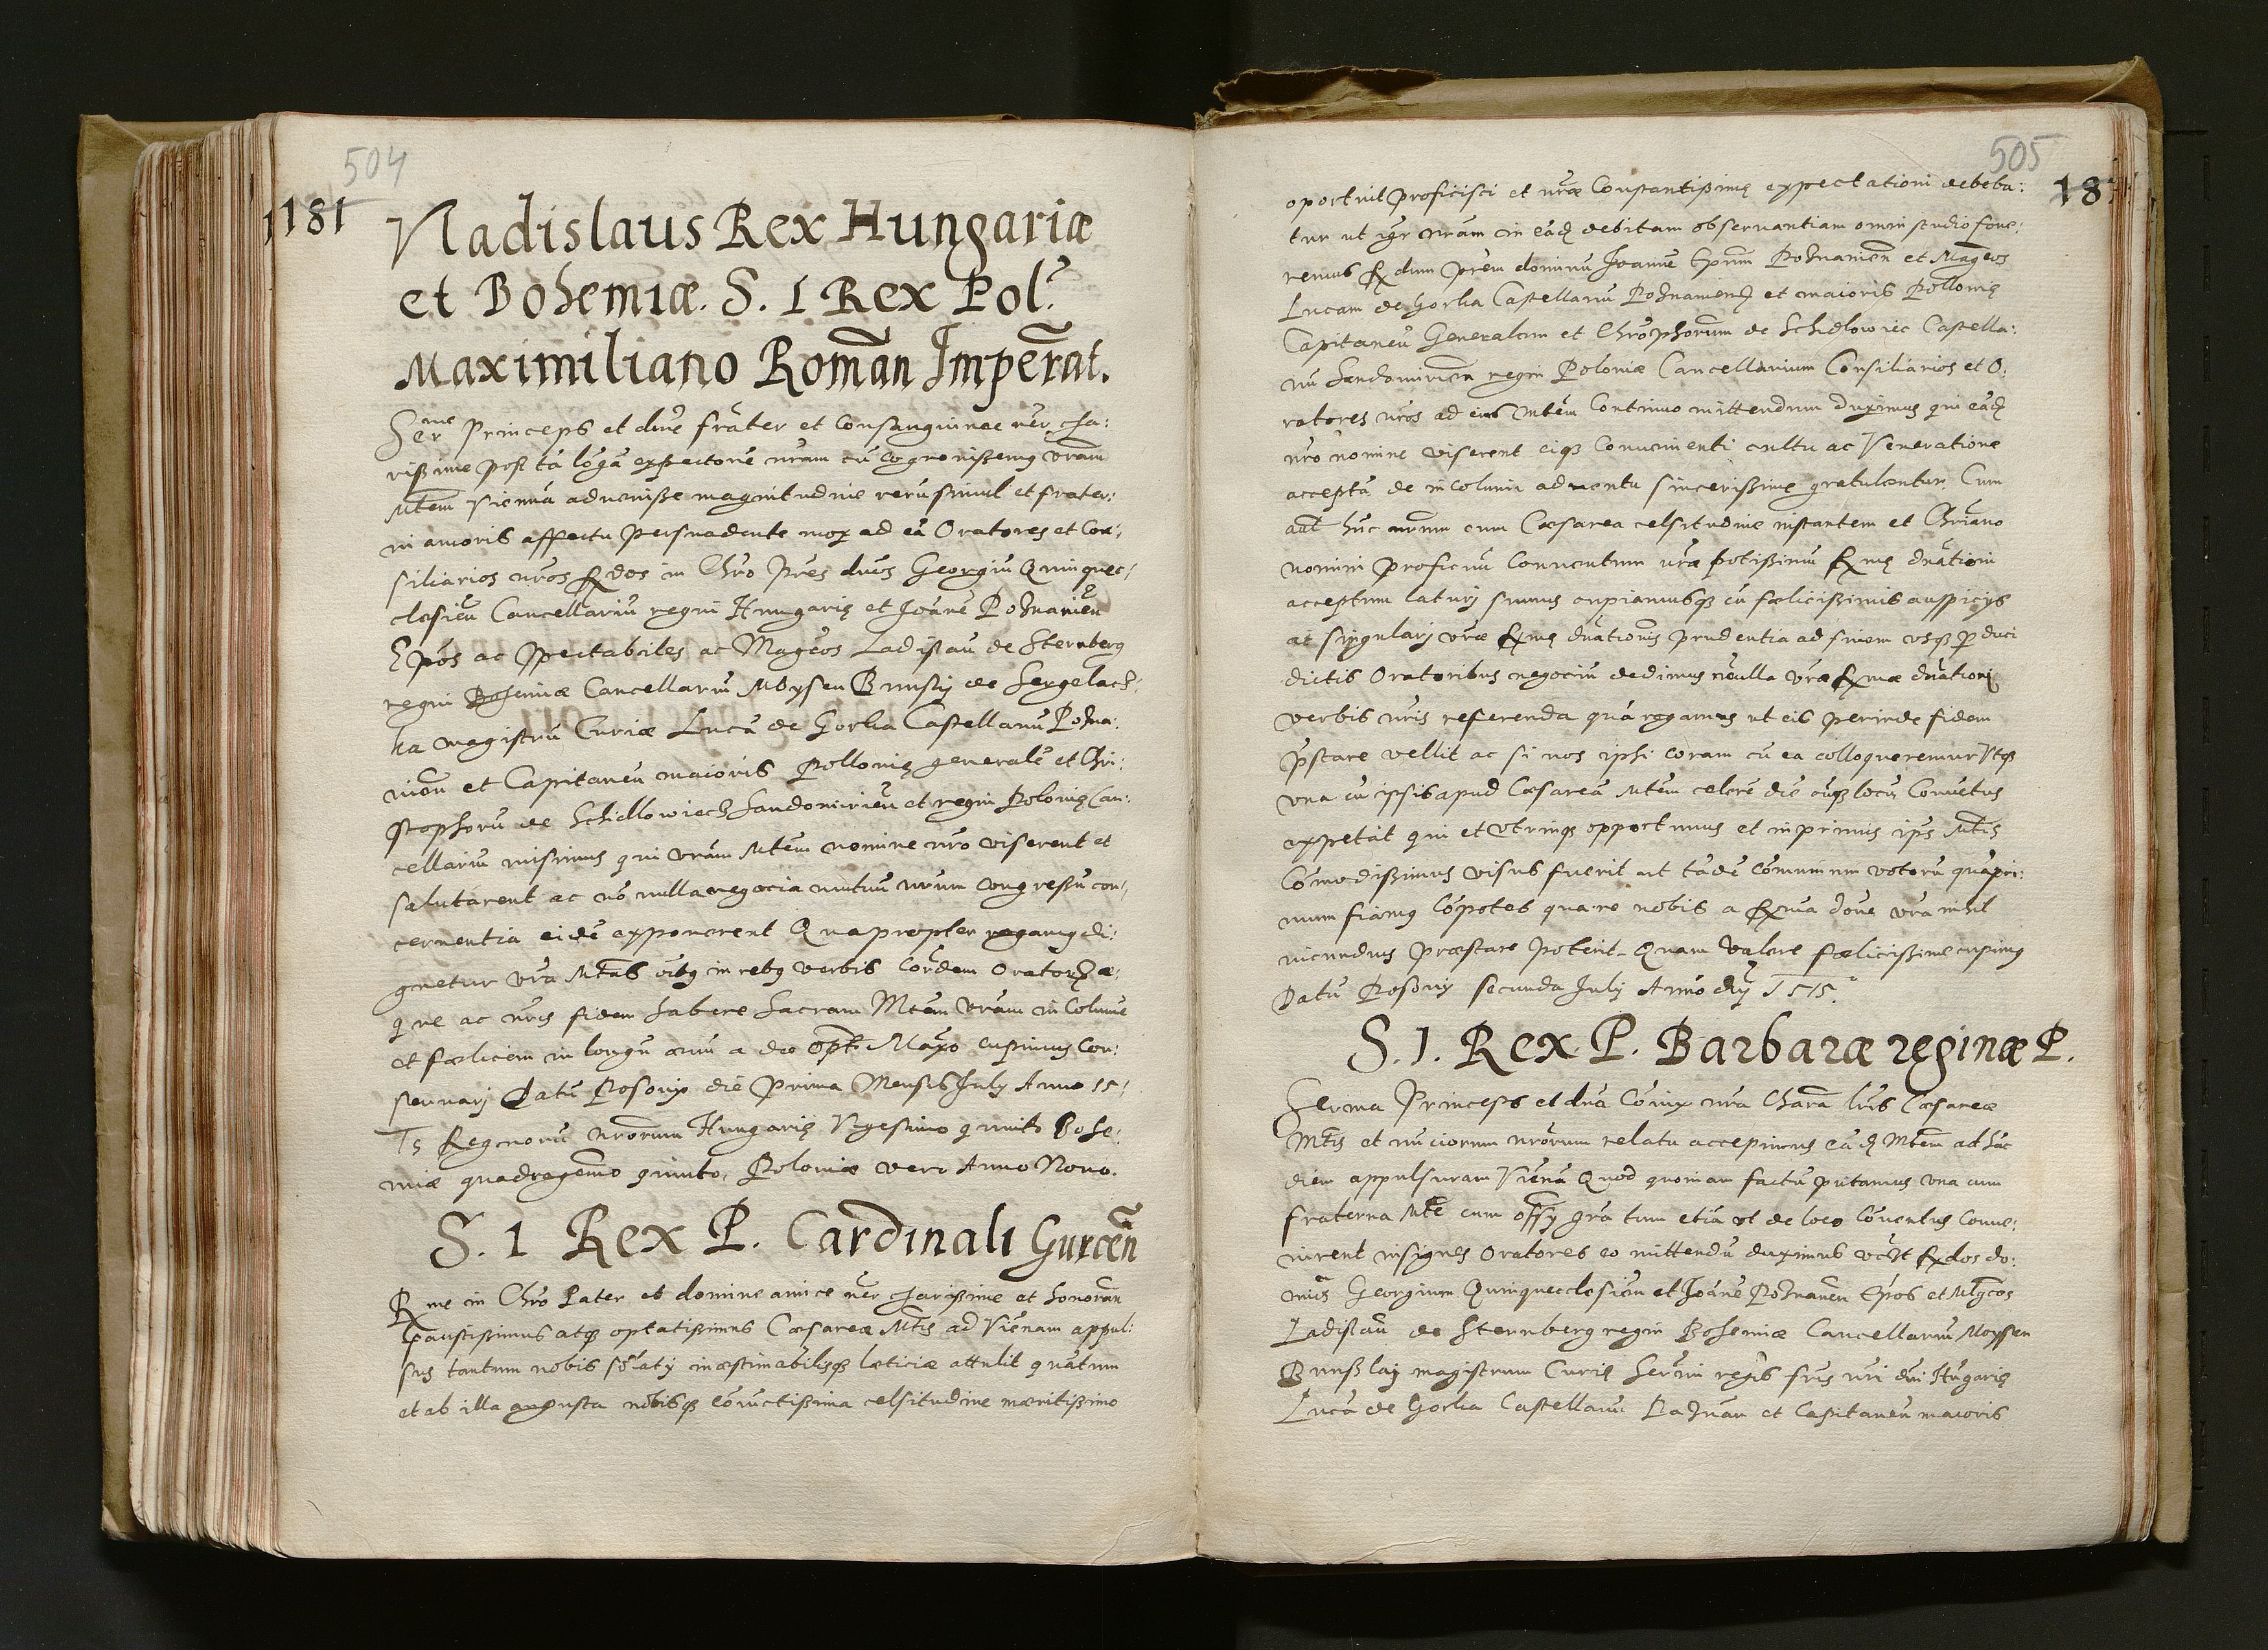 504
181
Vladislaus Rex Hungariæ
et Bohemiæ. S. I Rex Pol:
MaximilianoRomañ Imperat.
Serme Princeps et dñe frater et Consanguinee nr̃ cha:
rißime post tã lõgã expectoñe nram cũ cognovißemq vram
Mtem Viennã advenißse magnitudine rerũ simul et frater:
ni amoris affectu persuadente mox ad eã Oratores et Con:
siliarios nros Rdos in Chro Pres dnos Georgiũ Quinquec:
clesieñ Cancellariũ regni Hungarię et Joãnẽ Poznanieñ
Epos ac spectabiles ac Magcos Ladislaũ de Sternberg
regni Bohemiæ Cancellariũ Moysen de
ka magistrũ Curiæ Lucã de Gorka Castellanũ Pozna:
nien et Capitaneũ maioris Pollonię generalẽ et Chri:
stophorũ de Schidlowiecz Sandomirieñ et regni Polonię Can:
cellariũ misimus qui vram Mtem nomine nro viserent et
salutarent ac nõ nulla negocia mutuũ nrum congreßũ con:
cernentia eidẽ exponerent Quapropter rogamq di:
gnetur vra Mtas oĩbq in rebq verbis eordem Oratorũ æ:
q ne ac nris fidem habere Sacram Mtem vram in Colume
et foelicem in longũ ævũ a deo opt: Maxo cupimus Con:
servarj Datũ Posonij die Prima Mensis Julij Anno 15:
15 Regnorũ nrorum Hungarię Vigesimo quinto Bohe:
miæ quadragesimo quinto, Poloniæ vero Anno Nono.
S. I Rex P. Cardinali Gurceñ
Rme in Chro Pater et domine amice nr̃ charißime et honorañ
Faustißimus atq optatißimus Cæsareæ Mtis ad Vienam appul:
sus tantum nobis solatij inæstimabilisq læticiæ attulit quãtum
et ab illa augusta nobisq coniũctißima celsitudine meritißimo
505
oportuit proficisci et nræ Constantißimę expectationi debeba:
tur ut igr nram in eãd debitam observantiam omni studio fove:
remus Rdum prem dominũ Joannẽ Epum Poznanieñ et Magcos
Lucam de Gorka Castellanũ Poznanien et maioris Pollonię
Capitaneũ Generalem et Chrophorum de Schidlowiec Castella:
nũ Sandomirien regni Poloniæ Cancellarium Consiliarios et O:
ratores nros ad eius Mtem Continuo mittendum duximus qui eãd
nro nomine viserent eiq Convenienti cultu ac Veneratione
acceptã de incolumi adventu sincerißime gratulentur. Cum
aũt hũc nrum cum Cæsarea celsitudine instantem et Chriano
nomini proficuũ Conventum vræ potißimũ Rmę dnationi
acceptum laturj sumus cupiamusq cũ fœlicißimis auspicijs
ac singularj vræ Rmę dnationis prudentia ad finem usq p duci
dictis Oratoribus negociũ dedimus nõulla vræ Rmæ dnationi
verbis nris referenda quã rogamus ut eis perinde fidem
pstare vellit ac si nos ipsi coram cũ ea colloqueremur Utq
una cũ ipsis apud Cæsareã Mtem celerẽ diẽ eũq locũ Convẽtus
expetat qui et Utrinq opportunus et in primis ips Mtis
Cõmodißimus visus fuerit ut tãdẽ cõmunium votorũ quãpri:
mum fiamq cõpotes qua re nobis a Rma dõne vra nihil
iucundius præstare poterit. Quam Valere fœlicißime cupimq
Datũ Posonij secunda Julij Anno dnj 1515.
S. I. Rex P. Barbaræ reginæ P.
Serma Princeps et dna Cõiux nra Charã lris Cæsareæ
Mtis et nũciorum nrorum relatu accepimus eãd Mtem ad hãc
diem appulsuram Viẽnã Quod quoniam factũ putamus una cum
fraterna Mte cum offj grã tum etiã ut de loco Cõventus Conve:
nirent insignes Oratores eo mittendũ duximus Rdos do:
minõs Georgium Quinqueecclesieñ et Joãnẽ Poznaneñ Epos et Mgcos
Ladislaũ de Sternberg regni Bohemiæ Cancellariũ Moysen
magistrum Curię Sermi regis fris nri dni Hũgarię
Lucã de Gorka Castellanũ Poznañ et Capitaneũ maioris